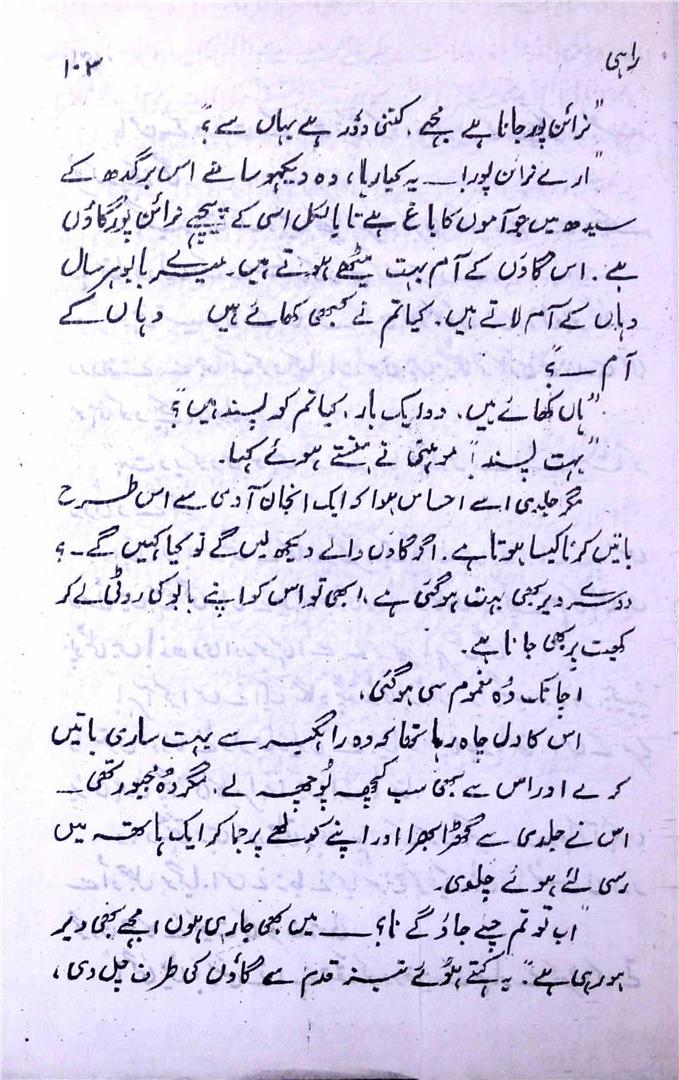 راہی
۱۰۳
"نرائن پور جانا ہے مجھے، کتنی دُور ہے یہاں سے؟"
"ارے نرائن پورا ــــ یہ کیا رہا، وہ دیکھو سامنے اس برگدھ کے
سیدھ میں جو آموں کا باغ ہے نا بالکل اسی کے پیچھے نرائن پور گاؤں
ہے. اس گاؤں کے آم بہت میٹھے ہوتے ہیں۔ میرے بابو ہر سال
وہاں کے آم لاتے ہیں. کیا تم نے کبھی کھائے ہیں وہاں کے
آم ــــ؟"
"ہاں کھائے ہیں، دو ایک بار، کیا تم کو پسند ہیں؟"
"بہت پسند" موہنی نے ہنستے ہوئے کہا۔
مگر جلدی اسے احساس ہوا کہ ایک انجان آدمی سے اس طرح
باتیں کرنا کیسا ہوتا ہے. اگر گاؤں والے دیکھ لیں گے تو کیا کہیں گے ــ؟
دوسرے دیر بھی بہت ہو گئی ہے، ابھی تو اس کو اپنے بابو کی روٹی لے کر
کھیت پر بھی جانا ہے۔
اچانک وُہ مغموم سی ہو گئی،
اس کا دل چاہ رہا تھا کہ وہ راہگیر سے بہت ساری باتیں
کرے اور اس سے بھی سب کچھ پُوچھ لے، مگر وُہ مجبور تھی ــــ
اس نے جلدی سے گھڑا بھرا اور اپنے کولھے پر جما کر ایک ہاتھ میں
رسی لئے ہوئے چلدی۔
"اب تو تم چلے جاؤ گے نا؟ ــــ میں بھی جا رہی ہوں! مجھے بھی دیر
ہو رہی ہے". یہ کہتے ہوُئے تیز قدم سے گاؤں کی طرف چل دی،